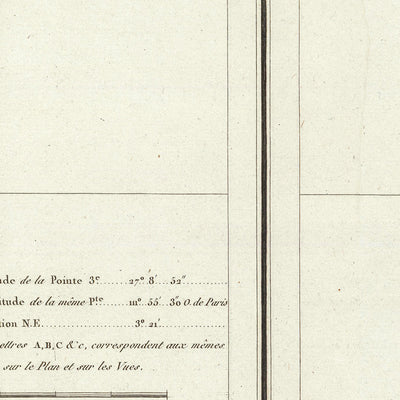 ude de la Pointe 3e ...... 27° 8' 52" ..........
itude de la même Pte ...... 111° 55' 30" O. de Paris
tion N.E. ...................... 3° 21' ................
ettres A, B, C &c, correspondent aux mêmes
sur le Plan et sur les Vues.